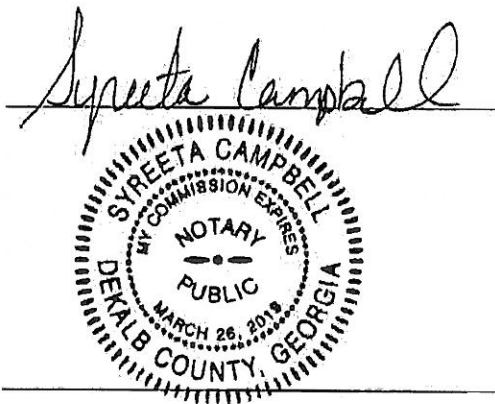 Syreeta Campbell
SYREETA CAMPBELL
MY COMMISSION EXPIRES
NOTARY
PUBLIC
MARCH 26, 2018
DEKALB COUNTY, GEORGIA